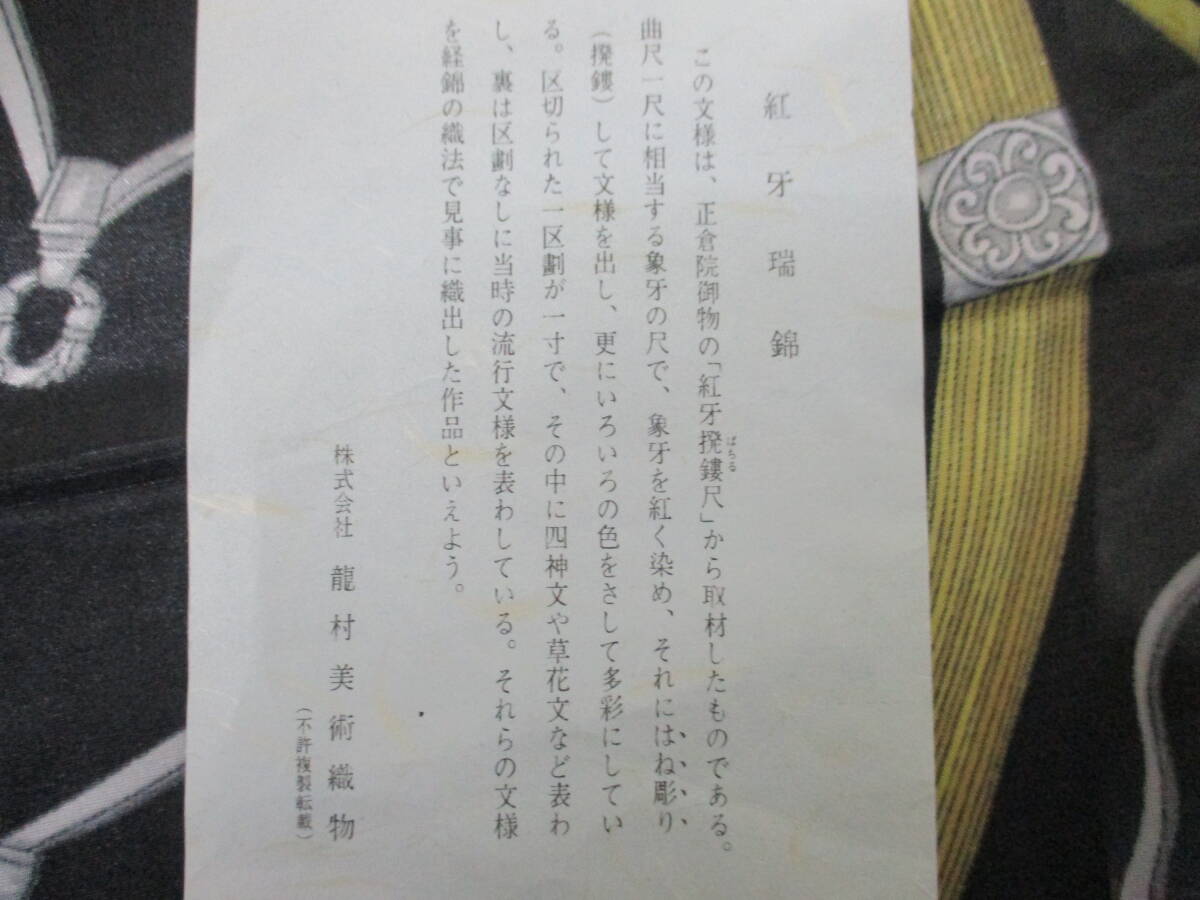 紅牙瑞錦
この文様は、正倉院御物の「紅牙撥鏤尺」から取材したものである。
ばちる
曲尺一尺に相当する象牙の尺で、象牙を紅く染め、それにはね彫り
(撥鏤)して文様を出し、更にいろいろの色をさして多彩にしてい
る。区切られた一区劃が一寸で、その中に四神文や草花文など表わ
し、裏は区劃なしに当時の流行文様を表わしている。それらの文様
を経錦の織法で見事に織出した作品といえよう。
株式会社 龍村美術織物
(不許複製転載)